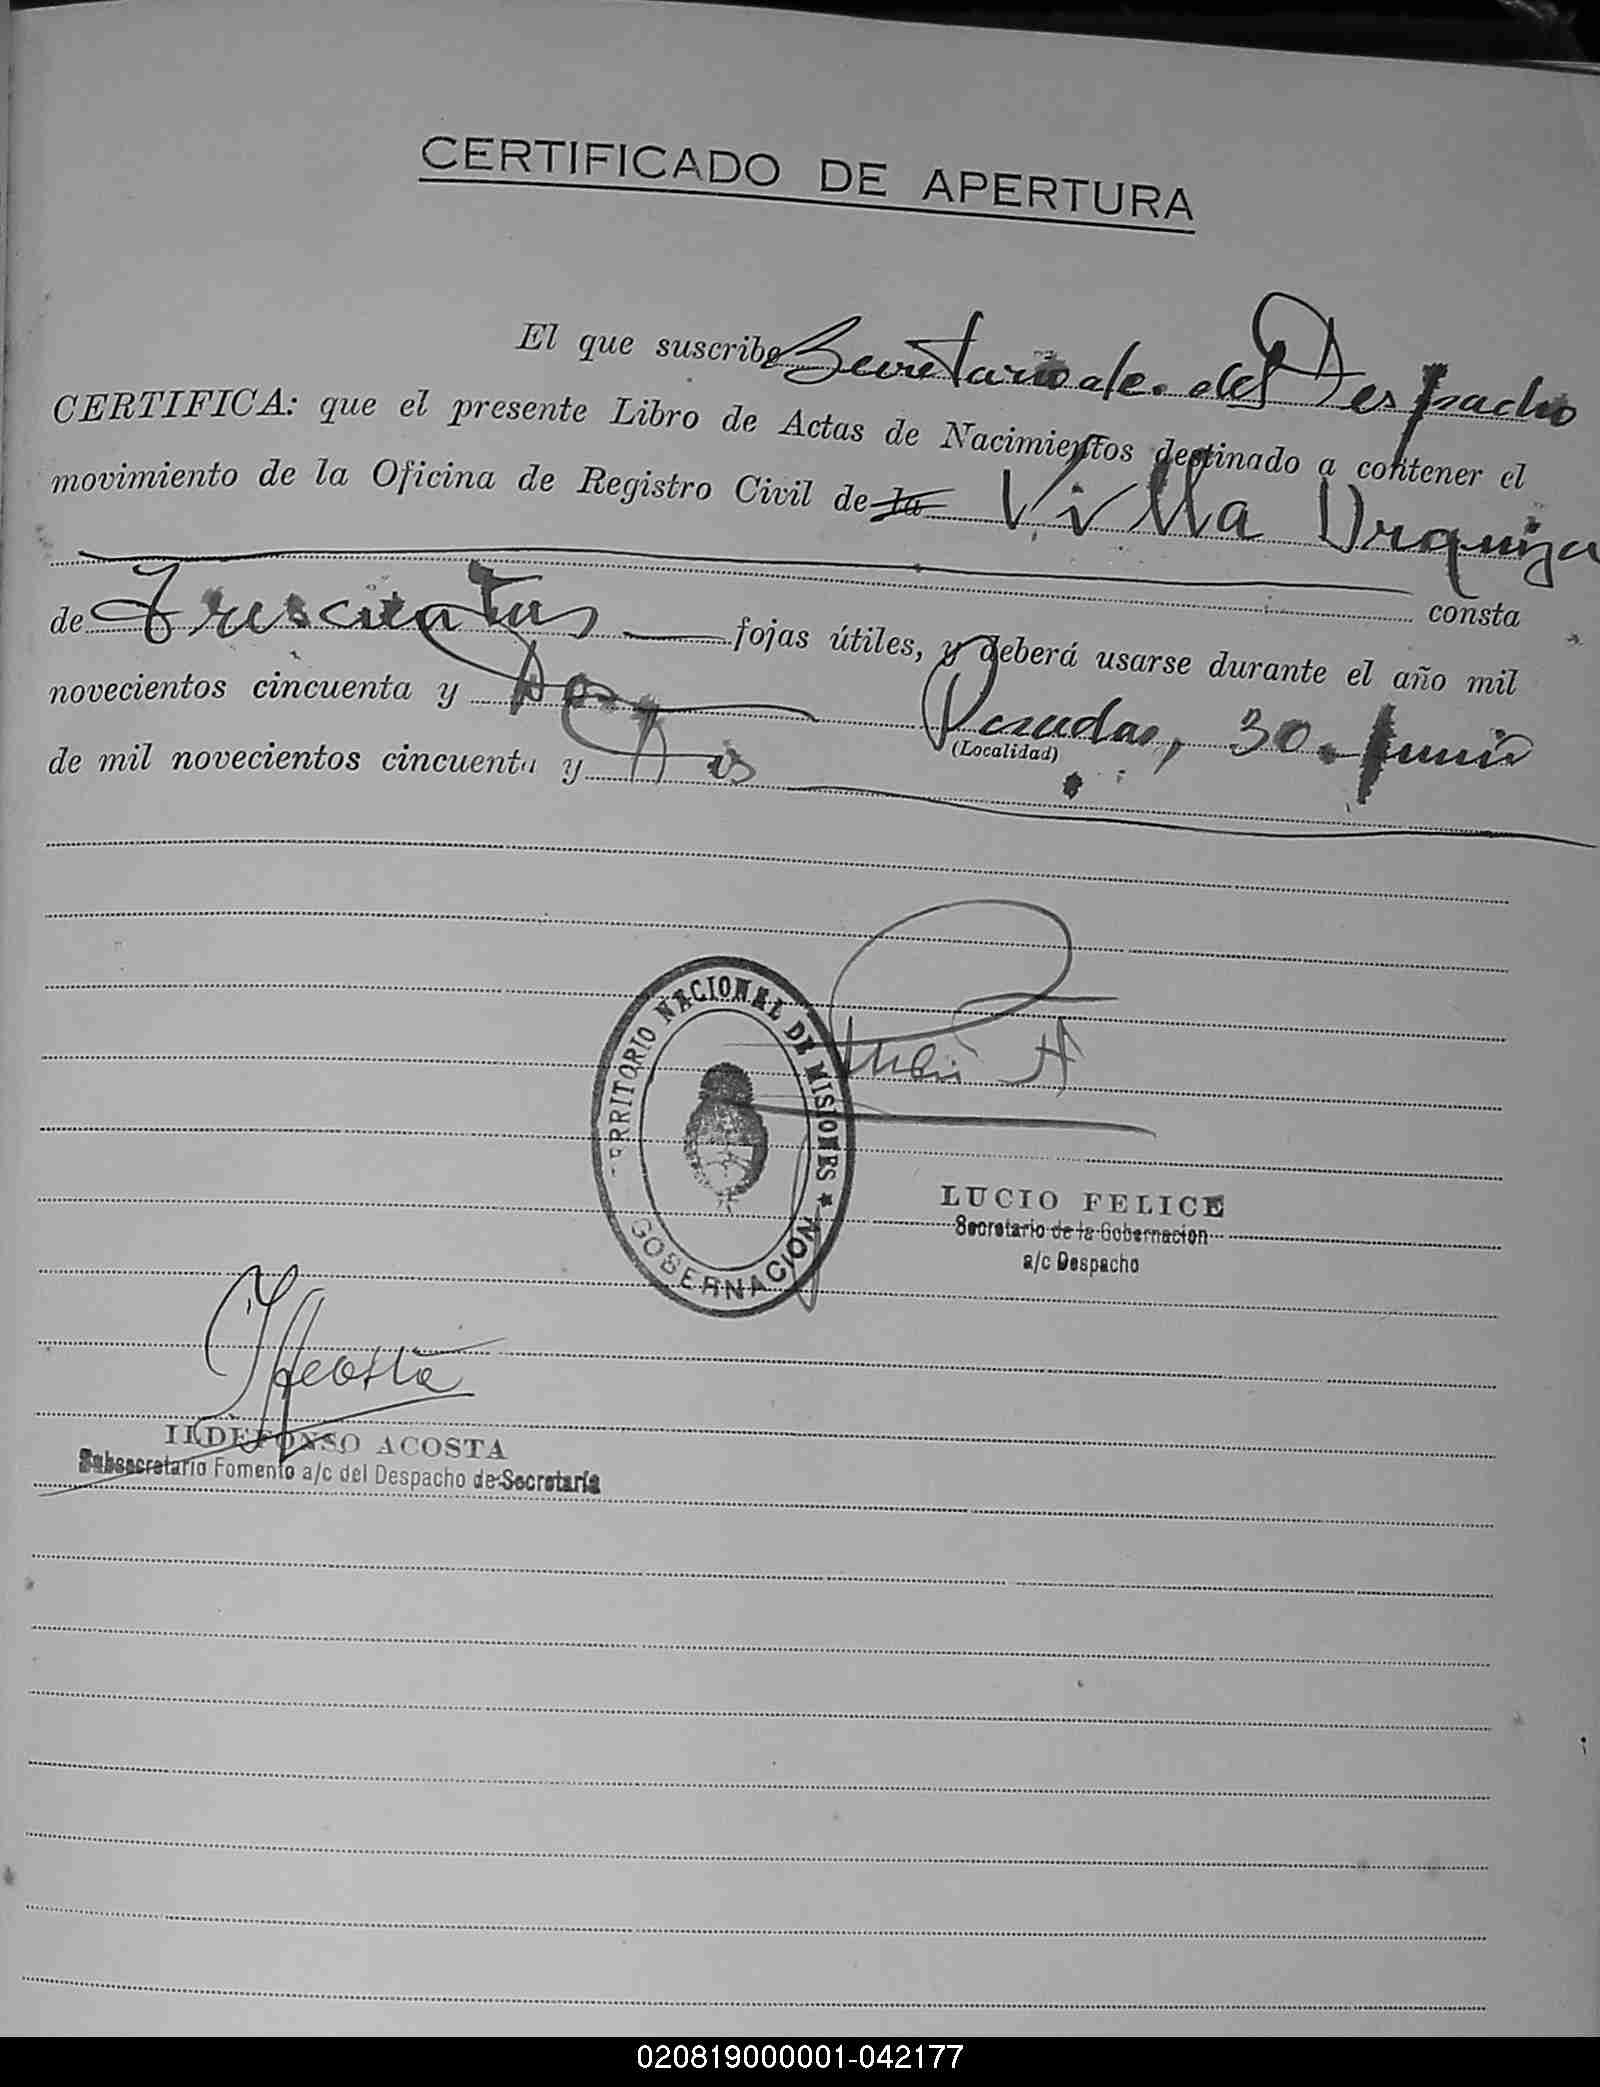 CERTIFICADO DE APERTURA
El que suscribe Secretario a/c. del Despacho
CERTIFICA: que el presente Libro de Actas de Nacimientos destinado a contener el
movimiento de la Oficina de Registro Civil de la Villa Urquiza
consta
de Trescientas fojas útiles, y deberá usarse durante el año mil
novecientos cincuenta y Posadas, 30. Junio
(Localidad)
de mil novecientos cincuenta y
TERRITORIO NACIONAL DE MISIONES ★
GOBERNACION
LUCIO FELICE
Secretario de la Gobernacion
a/c Despacho
I Acosta
ILDEFONSO ACOSTA
Subsecretario Fomento a/c del Despacho de Secretaría
020819000001-042177